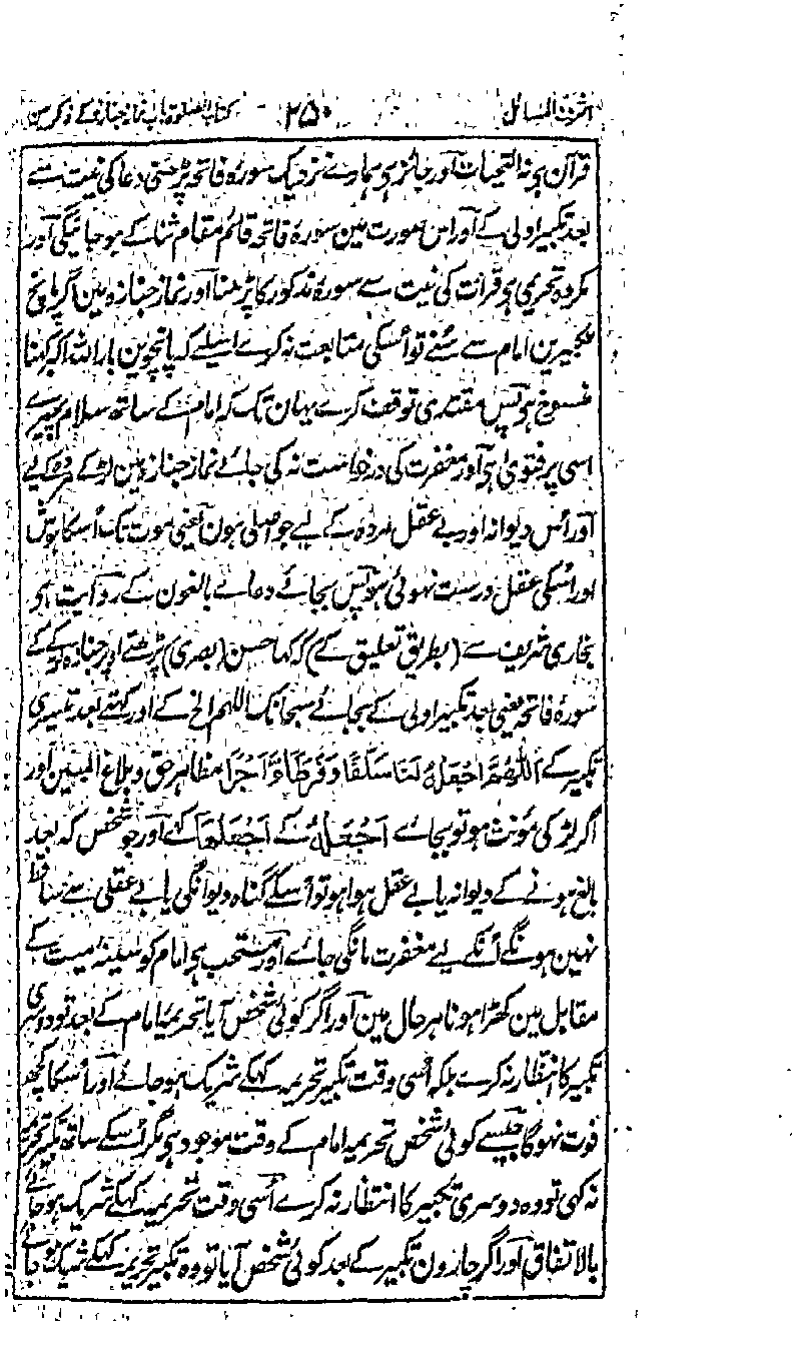 اشرف المسائل ۲۵۰ کتاب الصلوۃ باب نماز جنازہ کے ذکر مین
قرآن ہی نہ التحیات اور جائز ہی ہمارے نزدیک سورۂ فاتحہ پڑھنی دعا کی نیت سے
بعد تکبیر اولی کے اور اس صورت مین سورۂ فاتحہ قائم مقام ثنا کے ہو جائیگی اور
مکروہ تحریمی ہی قرائت کی نیت سے سورہ مذکور کا پڑھنا اور نماز جنازہ مین اگر پانچ
تکبیرین امام سے سُنے تو اُسکی متابعت نہ کرے اسلیے کہ پانچوین بار اللہ اکبر کہنا
منسوخ ہو پس مقتدی توقف کرے یہان تک کہ امام کے ساتھ سلام پھیرے
اسی پر فتویٰ ہی اور مغفرت کی درخواست نہ کی جائے نماز جنازہ مین لڑکے مردہ کے لیے
اور اُس دیوانہ اور بے عقل مردہ کے لیے جو اصلی ہون یعنی موت تک اُسکا ہوش
اور اُسکی عقل درست نہوئی ہو پس بجائے دعاے بالغون کے روایت ہی
بخاری شریف سے (بطریق تعلیق کے) کہ کہا حسن (بصری) پڑھتے اوپر جنازہ لڑکے کے
سورۂ فاتحہ یعنی بعد تکبیر اولی کے بجائے سبحانک اللہم الخ کے اور کہتے بعد تیسری
تکبیر کے اَللّٰهُمَّ اجْعَلْهُ لَنَا سَلَفًا وَفَرَطًا وَّاَجْرًا مظاہر حق و بلاغ المبین اور
اگر لڑکی مؤنث ہو تو بجاے اَجْعَلْهُ کے اَجْعَلْهَا کہے اور جو شخص کہ بعد
بالغ ہونے کے دیوانہ یا بے عقل ہوا ہو تو اُسکے گناہ دیوانگی یا بے عقلی سے ساقط
نہین ہونگے اُنکے لیے مغفرت مانگی جائے اور مستحب ہی امام کو سینۂ میت کے
مقابل مین کھڑا ہونا ہر حال مین اور اگر کوئی شخص آیا تحریمۂ امام کے بعد تو دوسری
تکبیر کا انتظار نہ کرے بلکہ اُسی وقت تکبیر تحریمہ کہکے شریک ہو جائے اور اُسکا کچھ
فوت نہوگا جیسے کوئی شخص تحریمۂ امام کے وقت موجود ہی مگر اُسکے ساتھ تکبیر تحریمہ
نہ کہی تو وہ دوسری تکبیر کا انتظار نہ کرے اُسی وقت تحریمہ کہکے شریک ہو جائے
بالاتفاق اور اگر چارون تکبیر کے بعد کوئی شخص آیا تو وہ تکبیر تحریمہ کہکے شریک ہو جائے